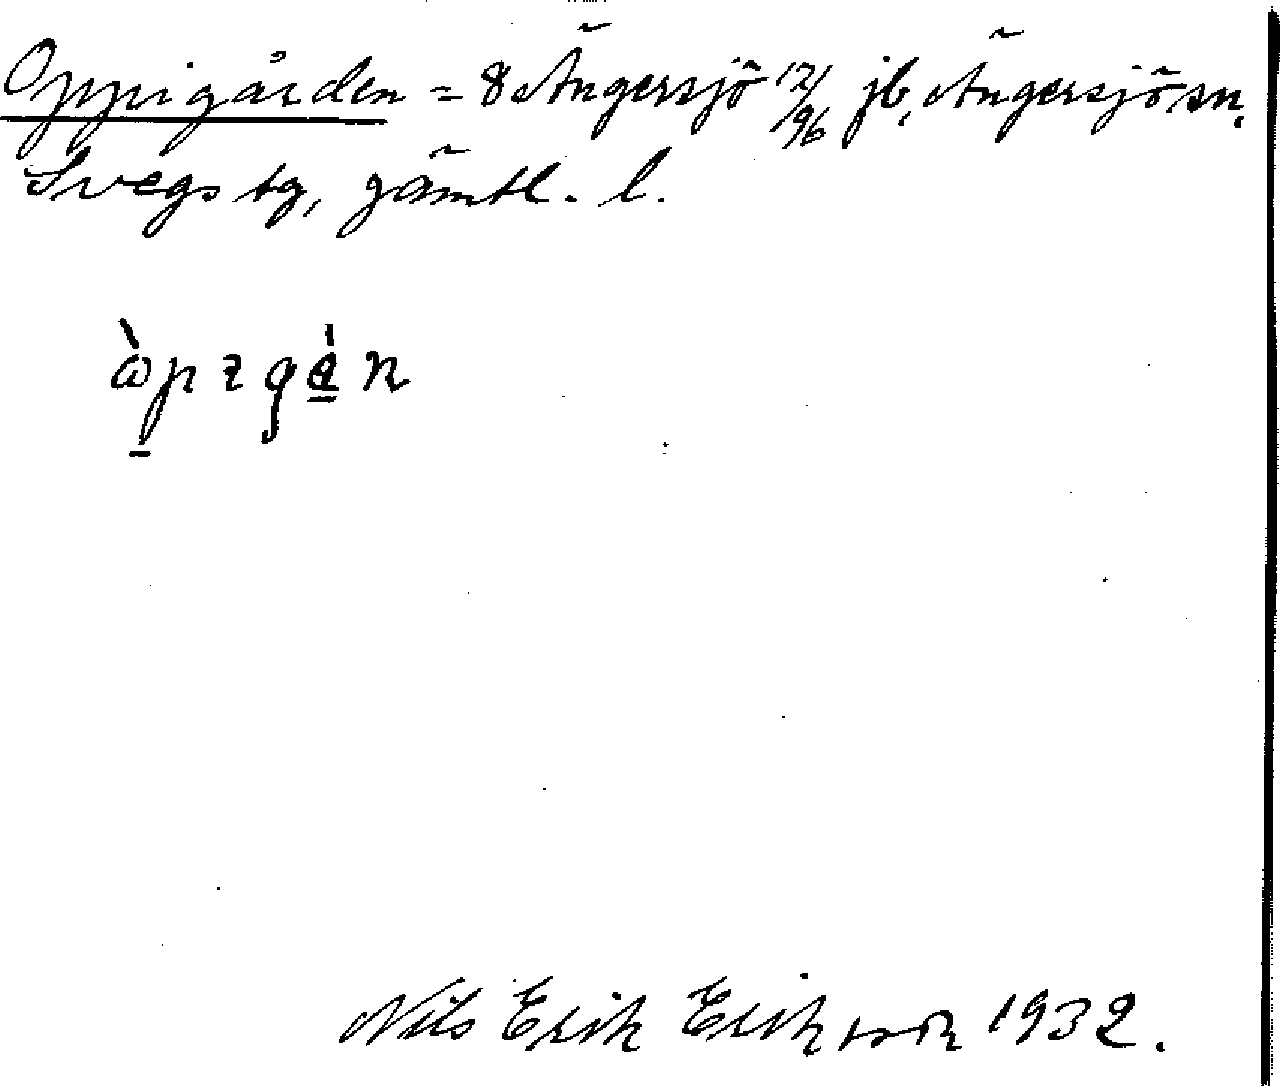 Oppigården = 8 Ängersjö 12/96 jb, Ängersjö sn.
Svegs tg, Jämtl. l.
Nils Erik Eriksson 1932.